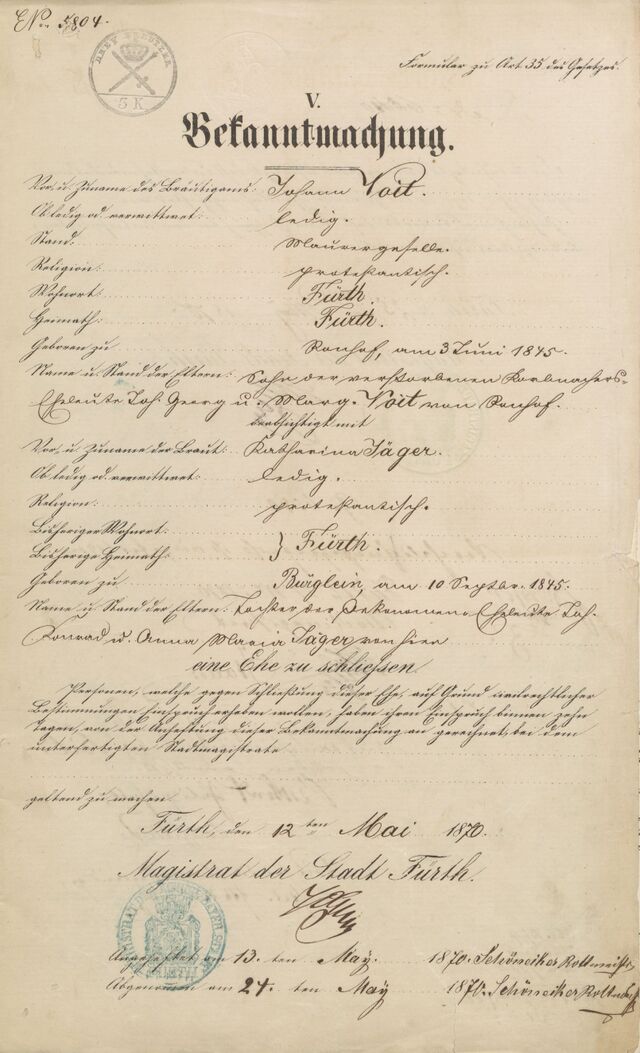 E Nr. 5804.
DREY KREUZER
5 K
Formular zu Art 35 des Gesetzes.
V.
Bekanntmachung.
Vor- u. Zuname des Bräutigams: Johann Voit.
Ob ledig od. verwittwet: ledig.
Stand: Maurergeselle.
Religion: protestantisch.
Wohnort: Fürth.
Heimath: Fürth.
Geboren zu Ronhof, am 3 Juni 1845.
Name u. Stand der Eltern: Sohn der verstorbenen Korbmachers-
Eheleute Joh. Georg u. Marg. Voit von Ronhof.
beabsichtigt mit
Vor- u. Zuname der Braut: Katharina Jäger.
Ob ledig od. verwittwet: ledig.
Religion: protestantisch.
Bisheriger Wohnort:
Bisherige Heimath: } Fürth.
Geboren zu Bürglein, am 10 Septbr. 1845.
Name u. Stand der Eltern: Tochter der Oekonomens Eheleute Joh.
Konrad u. Anna Maria Jäger von hier
eine Ehe zu schliessen.
Personen, welche gegen Schließung dieser Ehe, auf Grund civilrechtlicher
Bestimmungen Einspruch erheben wollen, haben ihren Einspruch binnen zehn
Tagen, von der Anheftung dieser Bekanntmachung an gerechnet, bei dem
unterfertigten Stadtmagistrate
geltend zu machen.
Fürth, den 12ten Mai 1870.
Magistrat der Stadt Fürth.
Angeheftet am 13. ten May. 1870. Schöneiker Rottmeister
Abgenomen am 24. ten May 1870. Schöneiker Rottmstr